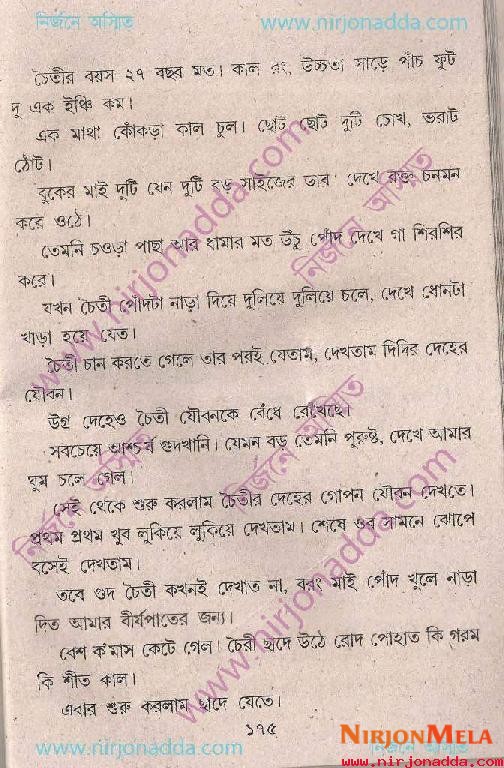 নির্জনে অস্মিত www.nirjonadda.com
চৈতীর বয়স ২৭ বছর মত। কাল রং, উচ্চতা সাড়ে পাঁচ ফুট
দু এক ইঞ্চি কম।
এক মাথা কোঁকড়া কাল চুল। ছোট ছোট দুটি চোখ, ভরাট
ঠোঁট।
বুকের মাই দুটি যেন দুটি বড় সাইজের ডাব দেখে রক্ত চনমন
করে ওঠে।
তেমনি চওড়া পাছা আর ধামার মত উঁচু পোঁদ দেখে গা শিরশির
করে।
যখন চৈতী পোঁদটা নাড়া দিয়ে দুলিয়ে দুলিয়ে চলে, দেখে ধোনটা
খাড়া হয়ে যেত।
চৈতী চান করতে গেলে তার পরই যেতাম, দেখতাম দিদির দেহের
যৌবন।
দেহেও চৈতী যৌবনকে বেঁধে রেখেছে।
সবচেয়ে আশ্চর্য গুদখানি। যেমন বড় তেমনি পুরুষ্ট, দেখে আমার
ঘুম চলে গেল।
সেই থেকে শুরু করলাম চৈতীর দেহের গোপন যৌবন দেখতে।
প্রথম প্রথম খুব লুকিয়ে লুকিয়ে দেখতাম। শেষে ওর সামনে ঝোপে
বসেই দেখতাম।
তবে গুদ চৈতী কখনই দেখাত না, বরং মাই পোঁদ খুলে নাড়া
দিত আমার বীর্যপাতের জন্য।
বেশ ক'মাস কেটে গেল। চৈতী ছাদে উঠে রোদ পোহাত কি গরম
কি শীত কাল।
এবার শুরু করলাম ছাদে যেতে।
১৭৫
www.nirjonadda.com নির্জনে অস্মিত
NIRJONMELA
www.nirjonadda.com